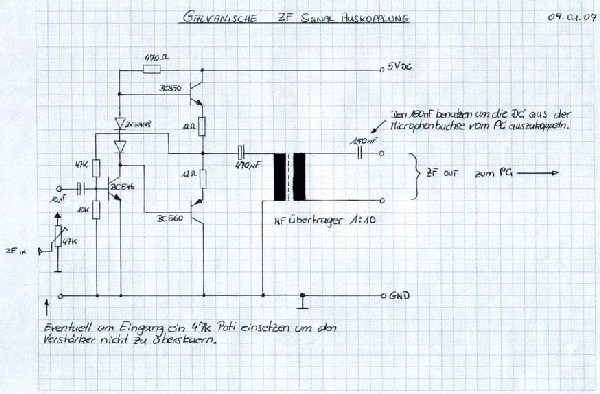 GALVANISCHE ZF SIGNAL AUSKOPPLUNG
09.01.07
470Ω
BC550
5V DC
Den 150nF benutzen um die DC aus der
Microphonbuchse vom PC auszukoppeln.
12Ω
470µF
150nF
47K
12Ω
ZF OUT zum PC
BC546
10µF
10K
BC560
NF Übertrager 1:10
ZF IN
47K
GND
Eventuell am Eingang ein 47k Poti einsetzen um den
Verstärker nicht zu übersteuern.